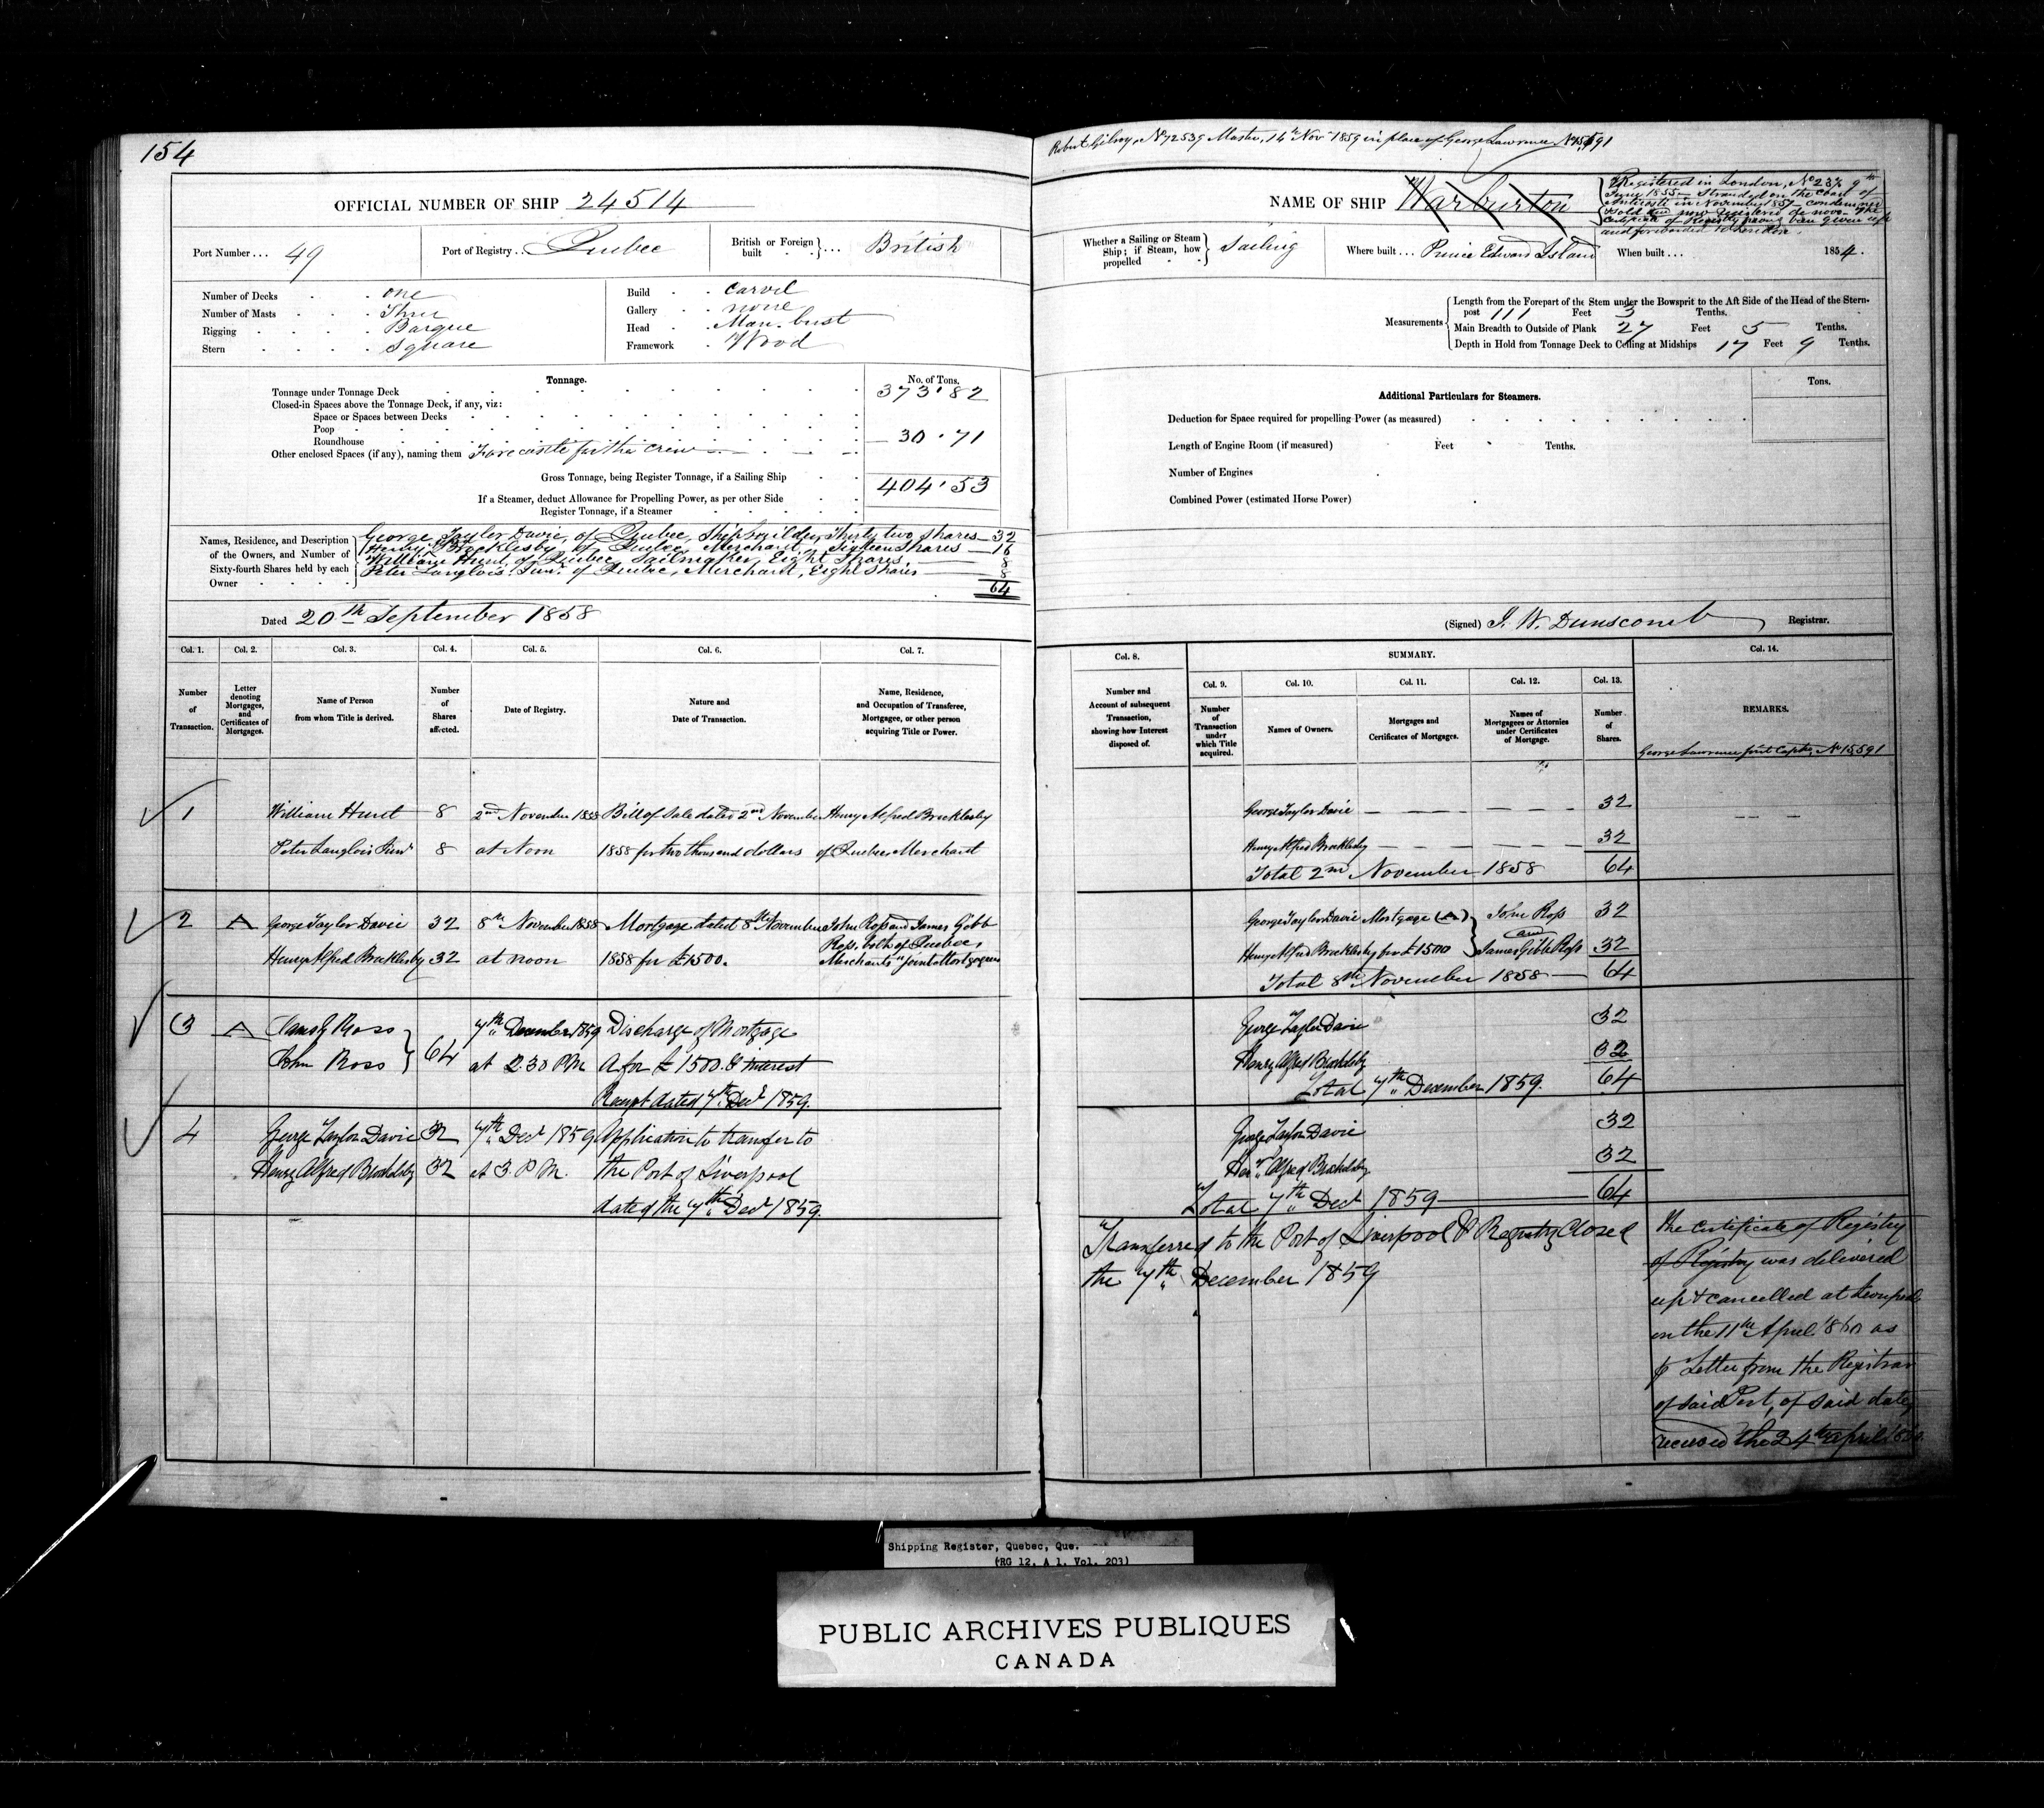 154
OFFICIAL NUMBER OF SHIP 24514
Port Number... 49 Port of Registry.. Quebec British or Foreign built ... British
Number of Decks one
Number of Masts Three
Rigging Barque
Stern Square
Build Carvel
Gallery none
Head Man. bust
Framework Wood
Tonnage. No. of Tons.
Tonnage under Tonnage Deck 373.82
Closed-in Spaces above the Tonnage Deck, if any, viz:
Space or Spaces between Decks
Poop
Roundhouse
Other enclosed Spaces (if any), naming them Forecastle for the crew 30.71
Gross Tonnage, being Register Tonnage, if a Sailing Ship 404.53
If a Steamer, deduct Allowance for Propelling Power, as per other Side
Register Tonnage, if a Steamer
Names, Residence, and Description of the Owners, and Number of Sixty-fourth Shares held by each Owner
George Taylor Davie, of Quebec, Shipbuilder, Thirty two shares 32
Henry A. Brocklesby, of Quebec, Merchant, Sixteen Shares 16
William Hunt, of Quebec, Sailmaker, Eight Shares 8
Peter Langlois Junr. of Quebec, Merchant, Eight Shares 8
64
Dated 20th September 1858
Col. 1. Col. 2. Col. 3. Col. 4. Col. 5. Col. 6. Col. 7.
Number of Transaction.
Letter denoting Mortgages, and Certificates of Mortgages.
Name of Person from whom Title is derived.
Number of Shares affected.
Date of Registry.
Nature and Date of Transaction.
Name, Residence, and Occupation of Transferee, Mortgagee, or other person acquiring Title or Power.
1 William Hunt 8 2nd November 1858 Bill of Sale dated 2nd November Henry Alfred Brocklesby
Peter Langlois Junr 8 at Noon 1858 for two thousand dollars of Quebec Merchant
2 A George Taylor Davie 32 8th November 1858 Mortgage dated 8th November John Ross and James Gibb
Ross, both of Quebec,
Henry Alfred Brocklesby 32 at noon 1858 for £1500. Merchants joint Mortgagees
3 A James G Ross 7th December 1859 Discharge of Mortgage
John Ross 64 at 2.30 P.M. A for £1500. & interest
Receipt dated 7th Decr 1859.
4 George Taylor Davie 32 7th Decr 1859 Application to transfer to
Henry Alfred Brocklesby 32 at 3. P.M. the Port of Liverpool
dated the 7th Decr 1859.
Robert Gilroy, No 72539 Master, 14th Nov 1859 in place of George Lawrence No 15591
NAME OF SHIP Warburton
Registered in London, No 237 9th
June 1855 - Stranded on the Coast of
Anticosti in November 1857 - condemned
sold and now registered de novo - the
Certificate of Registry having been given up
and forwarded to London.
Whether a Sailing or Steam Ship; if Steam, how propelled Sailing Where built... Prince Edward Island When built... 1854.
Measurements
Length from the Forepart of the Stem under the Bowsprit to the Aft Side of the Head of the Stern-
post 111 Feet 3 Tenths.
Main Breadth to Outside of Plank 27 Feet 5 Tenths.
Depth in Hold from Tonnage Deck to Ceiling at Midships 17 Feet 9 Tenths.
Additional Particulars for Steamers. Tons.
Deduction for Space required for propelling Power (as measured)
Length of Engine Room (if measured) Feet Tenths.
Number of Engines
Combined Power (estimated Horse Power)
(Signed) J. W. Dunscomb Registrar.
Col. 8. SUMMARY. Col. 14.
Col. 9. Col. 10. Col. 11. Col. 12. Col. 13.
Number and Account of subsequent Transaction, showing how Interest disposed of.
Number of Transaction under which Title acquired.
Names of Owners.
Mortgages and Certificates of Mortgages.
Names of Mortgagees or Attornies under Certificates of Mortgage.
Number of Shares.
REMARKS.
George Lawrence first Captn, No 15,591
George Taylor Davie 32
Henry Alfred Brocklesby 32
Total 2nd November 1858 64
George Taylor Davie Mortgage (A) John Ross 32
and
Henry Alfred Brocklesby for £1500 James Gibb Ross 32
Total 8th November 1858 64
George Taylor Davie 32
Henry Alfred Brocklesby 32
Total 7th December 1859. 64
George Taylor Davie 32
Heny. Alfred Brocklesby 32
Total 7th Decr 1859 64
Transferred to the Port of Liverpool & Registry Closed
the 7th December 1859
The Certificate of Registry
of Registry was delivered
up & cancelled at Liverpool
on the 11th April 1860 as
p Letter from the Registrar
of said Port, of said date,
received the 24th April 1860.
Shipping Register, Quebec, Que.
(RG 12, A 1, Vol. 203)
PUBLIC ARCHIVES PUBLIQUES
CANADA